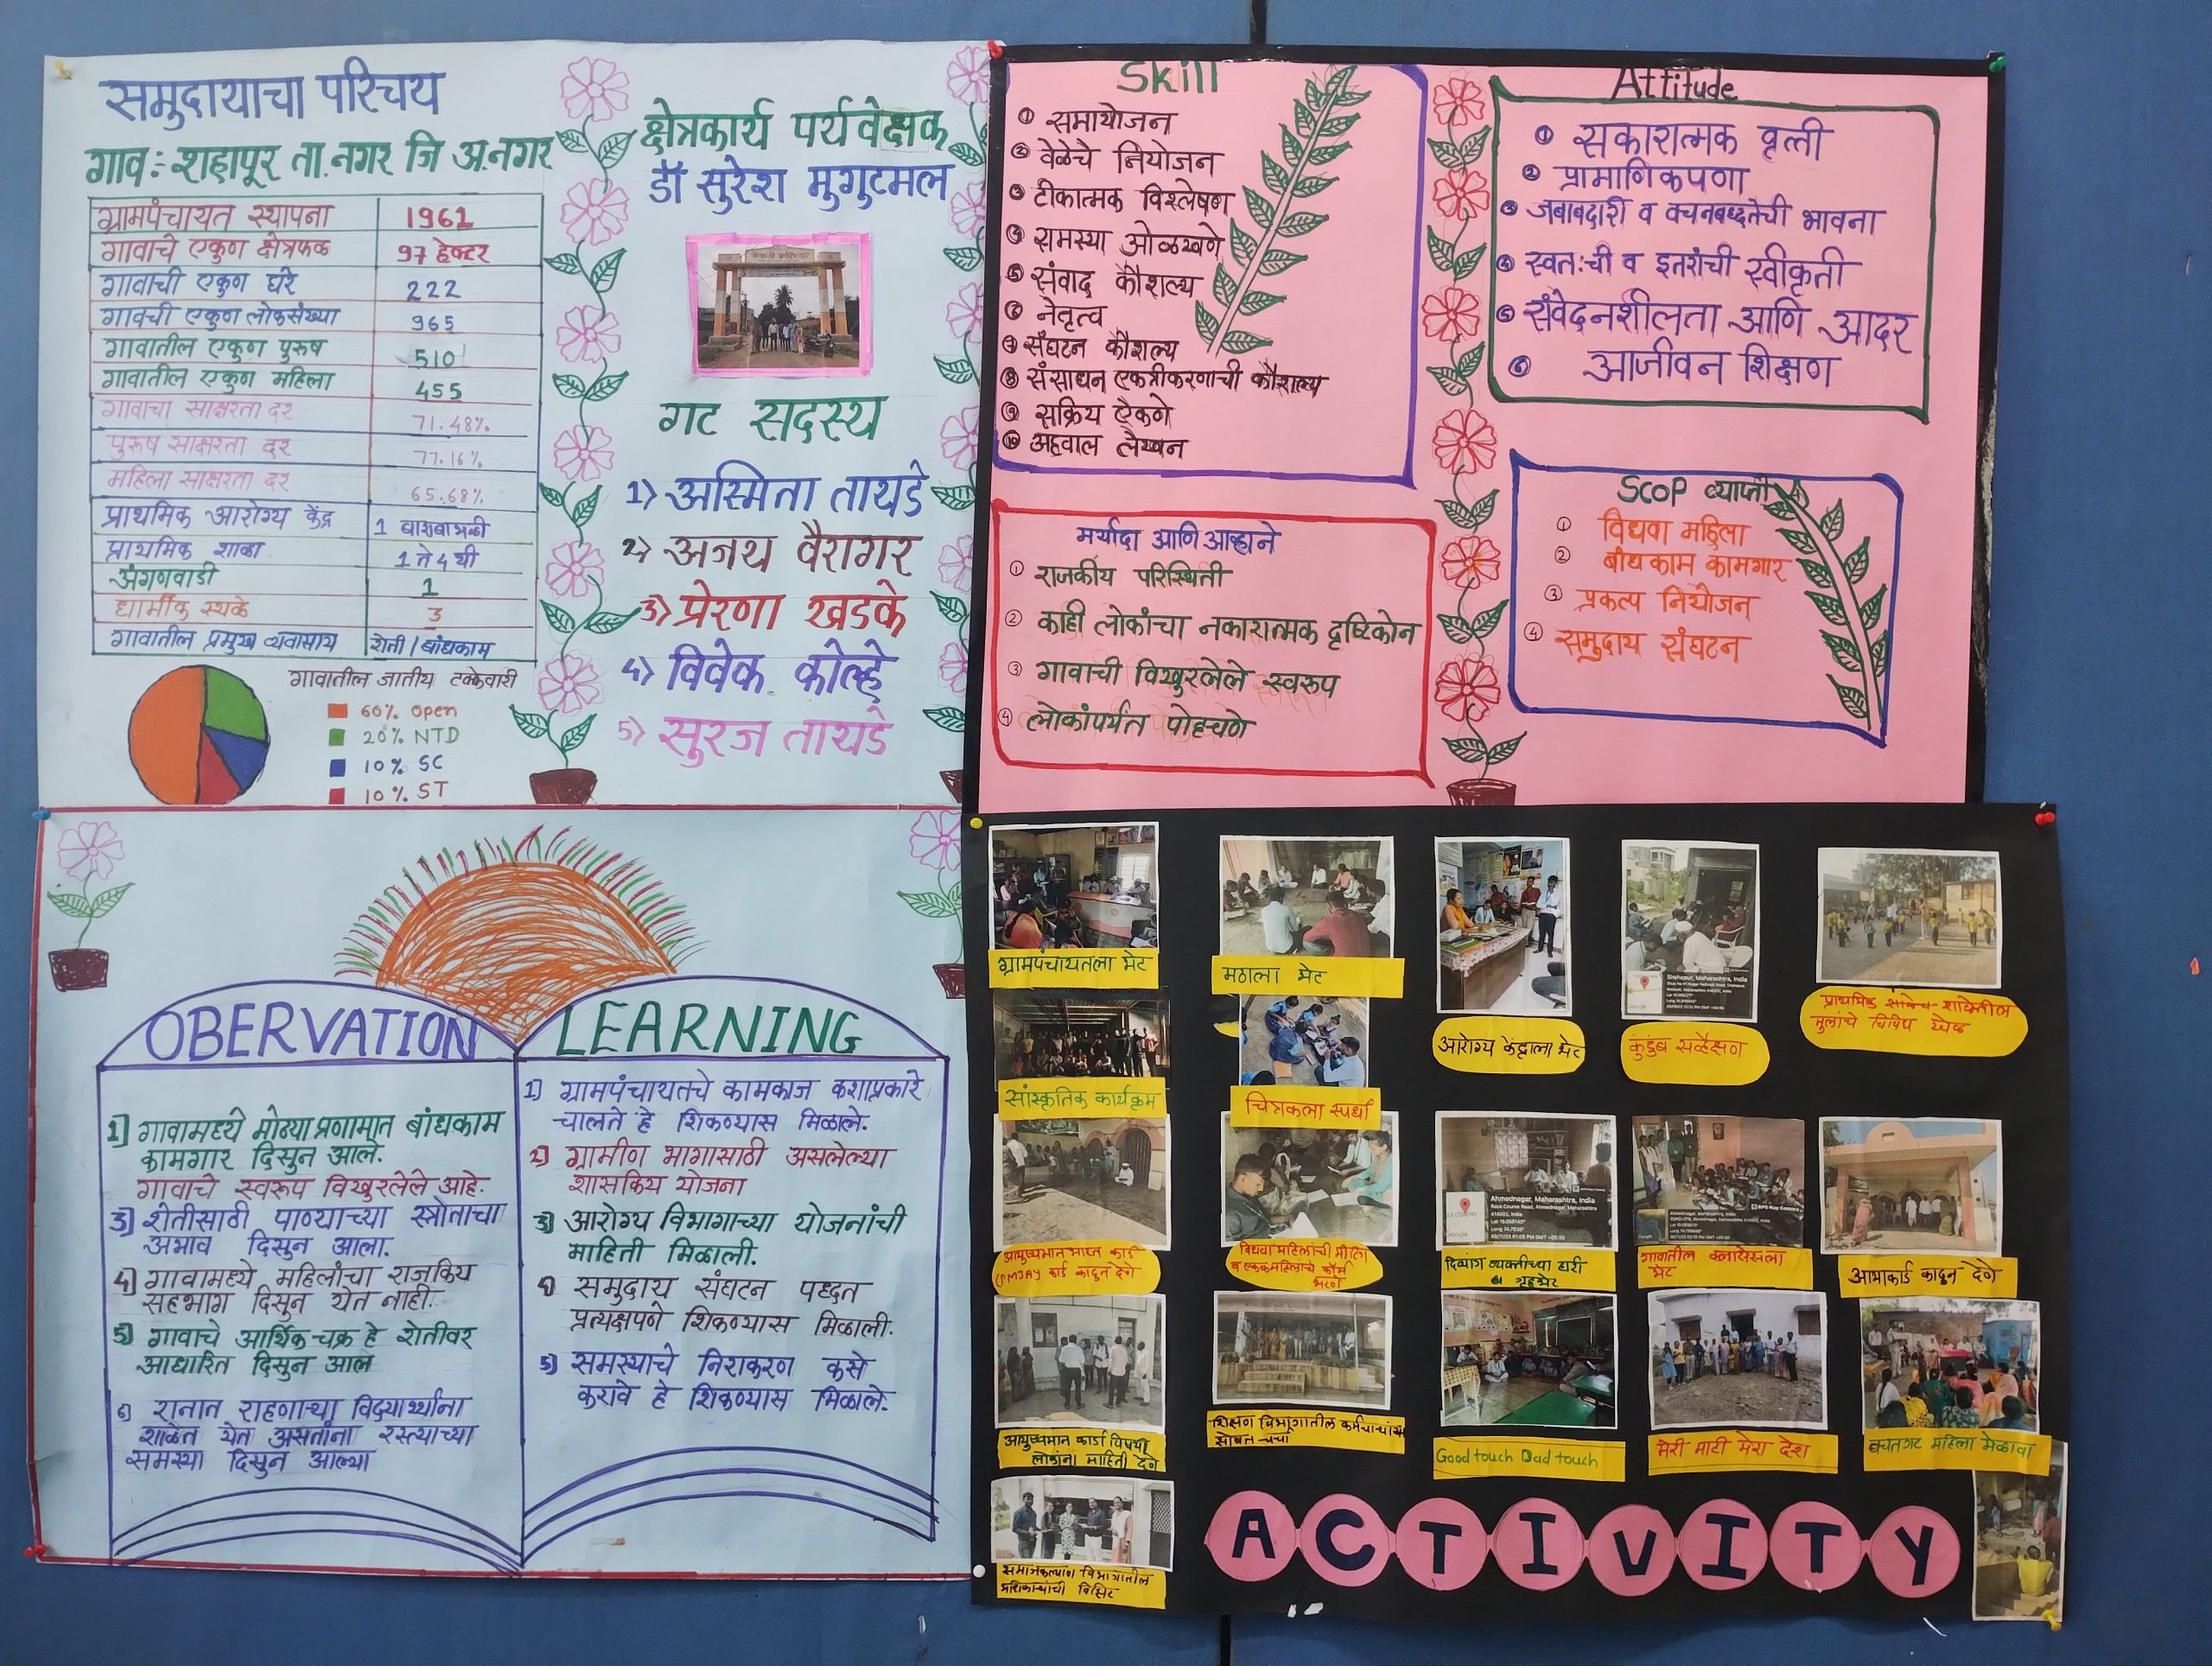 समुदायाचा परिचय
गाव:- शहापूर ता.नगर जि अ.नगर
ग्रामपंचायत स्थापना 1961
गावाचे एकुण क्षेत्रफळ 97 हेक्टर
गावाची एकुण घरे 222
गावची एकुण लोकसंख्या 965
गावातील एकुण पुरुष 510
गावातील एकुण महिला 455
गावाचा साक्षरता दर 71.48%
पुरुष साक्षरता दर 77.16%
महिला साक्षरता दर 65.68%
प्राथमिक आरोग्य केंद्र 1 बाराबाभळी
प्राथमिक शाळा 1 ते 4 थी
अंगणवाडी 1
धार्मीक स्थळे 3
गावातील प्रमुख व्यवासाय शेती / बांधकाम
गावातील जातीय टक्केवारी
60% Open
20% NTD
10% SC
10% ST
क्षेत्रकार्य पर्यवेक्षक
डॉ सुरेश मुगुटमल
गट सदस्य
1) अस्मिता तायडे
2) अजय वैरागर
3) प्रेरणा खडके
4) विवेक कोल्हे
5) सुरज तायडे
Skill
① समायोजन
② वेळेचे नियोजन
③ टीकात्मक विश्लेषण
④ समस्या ओळखणे
⑤ संवाद कौशल्य
⑥ नेतृत्व
⑦ संघटन कौशल्य
⑧ संसाधन एकत्रीकरणाची कौशल्य
⑨ सक्रिय ऐकणे
⑩ अहवाल लेखन
Attitude
① सकारात्मक वृत्ती
② प्रामाणिकपणा
③ जबाबदारी व वचनबध्दतेची भावना
④ स्वतःची व इतरांची स्वीकृती
⑤ संवेदनशीलता आणि आदर
⑥ आजीवन शिक्षण
मर्यादा आणि आव्हाने
① राजकीय परिस्थिती
② काही लोकांचा नकारात्मक दृष्टिकोन
③ गावाची विखुरलेले स्वरूप
④ लोकांपर्यंत पोहचणे
Scop व्याप्ती
① विधवा महिला
② बांधकाम कामगार
③ प्रकल्प नियोजन
④ समुदाय संघटन
OBERVATION
1] गावामध्ये मोठ्या प्रणामात बांधकाम
कामगार दिसुन आले.
गावाचे स्वरूप विखुरलेले आहे.
3] शेतीसाठी पाण्याच्या स्त्रोताचा
अभाव दिसुन आला.
4] गावामध्ये महिलांचा राजकिय
सहभाग दिसुन येत नाही.
5] गावाचे आर्थिक चक्र हे शेतीवर
आधारित दिसुन आल
6] रानात राहणाऱ्या विद्यार्थ्यांना
शाळेत येत असतांना रस्त्याच्या
समस्या दिसुन आल्या
LEARNING
1] ग्रामपंचायतचे कामकाज कशाप्रकारे
चालते हे शिकण्यास मिळाले.
2] ग्रामीण भागासाठी असलेल्या
शासकिय योजना
3] आरोग्य विभागाच्या योजनांची
माहिती मिळाली.
4] समुदाय संघटन पध्दत
प्रत्यक्षपणे शिकण्यास मिळाली.
5] समस्याचे निराकरण कसे
करावे हे शिकण्यास मिळाले.
ग्रामपंचायतला भेट
मठाला भेट
आरोग्य केंद्राला भेट
कुंटुब सर्व्हेक्षण
प्राथमिक
मुलांचे विविध खेळ
Shahapur, Maharashtra, India
सांस्कृतिक कार्यक्रम
चित्रकला स्पर्धा
आयुष्यमान भारत कार्ड
(PMJAY कार्ड काढुन देणे
विधवा महिलांची
दिव्यांग व्यक्तीच्या घरी
गृहभेट
Ahmednagar, Maharashtra, India
गावातील
भेट
आभाकार्ड काढुन देणे
आयुष्यमान कार्डा विषयी
लोकांना माहिती देणे
शिक्षण विभागातील कर्मचाऱ्यांच्या
सोबत चर्चा
Good touch Bad touch
मेरी माटी मेरा देश
बचतगट महिला मेळावा
समाजकल्याण विभागातील
ACTIVITY